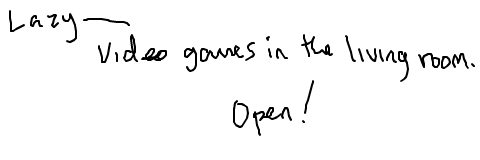 Lazy —
Video games in the living room.
Open!